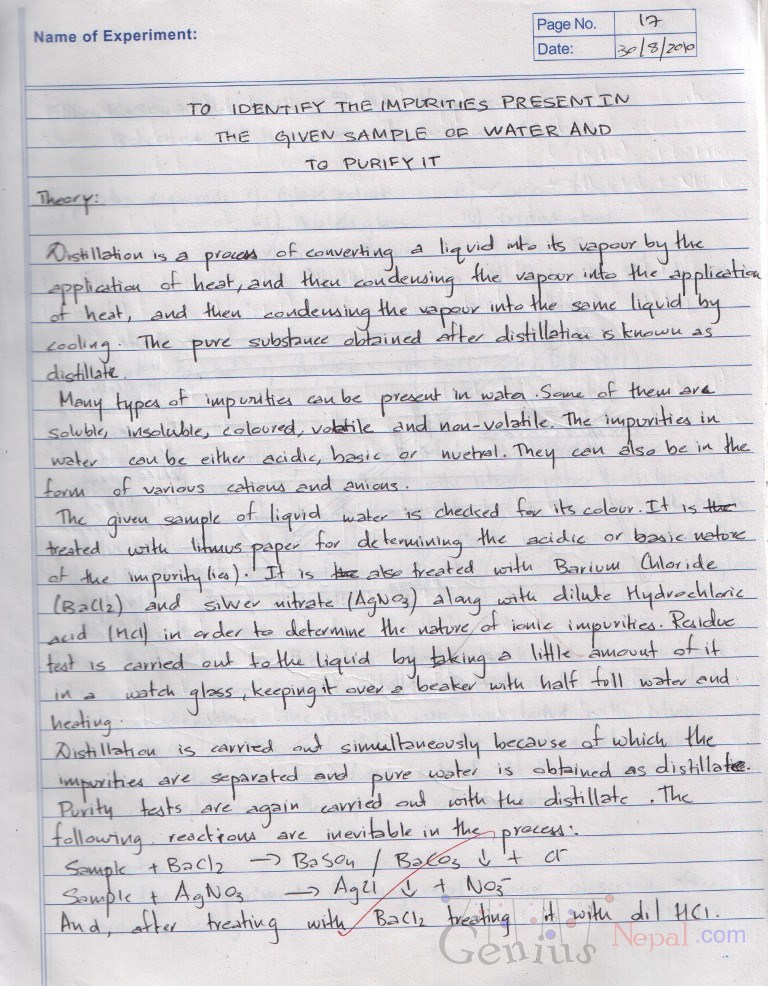 Name of Experiment:
Page No. 17
Date: 30/8/2010
TO IDENTIFY THE IMPURITIES PRESENT IN
THE GIVEN SAMPLE OF WATER AND
TO PURIFY IT
Theory:
Distillation is a process of converting a liquid into its vapour by the
application of heat, and then condensing the vapour into the application
of heat, and then condensing the vapour into the same liquid by
cooling. The pure substance obtained after distillation is known as
distillate.
Many types of impurities can be present in water. Some of them are
soluble, insoluble, coloured, volatile and non-volatile. The impurities in
water can be either acidic, basic or nuetral. They can also be in the
form of various cations and anions.
The given sample of liquid water is checked for its colour. It is the
treated with litmus paper for determining the acidic or basic nature
of the impurity(ies). It is the also treated with Barium Chloride
(BaCl2) and silver nitrate (AgNO3) along with dilute Hydrochloric
acid (HCl) in order to determine the nature of ionic impurities. Residue
test is carried out to the liquid by taking a little amount of it
in a watch glass, keeping it over a beaker with half full water and
heating.
Distillation is carried out simultaneously because of which the
impurities are separated and pure water is obtained as distillate.
Purity tests are again carried out with the distillate. The
following reactions are inevitable in the process:
Sample + BaCl2 → BaSO4 / BaCO3 ↓ + Cl-
Sample + AgNO3 → AgCl ↓ + NO3-
And, after treating with BaCl2 treating it with dil HCl.
Genius Nepal.com